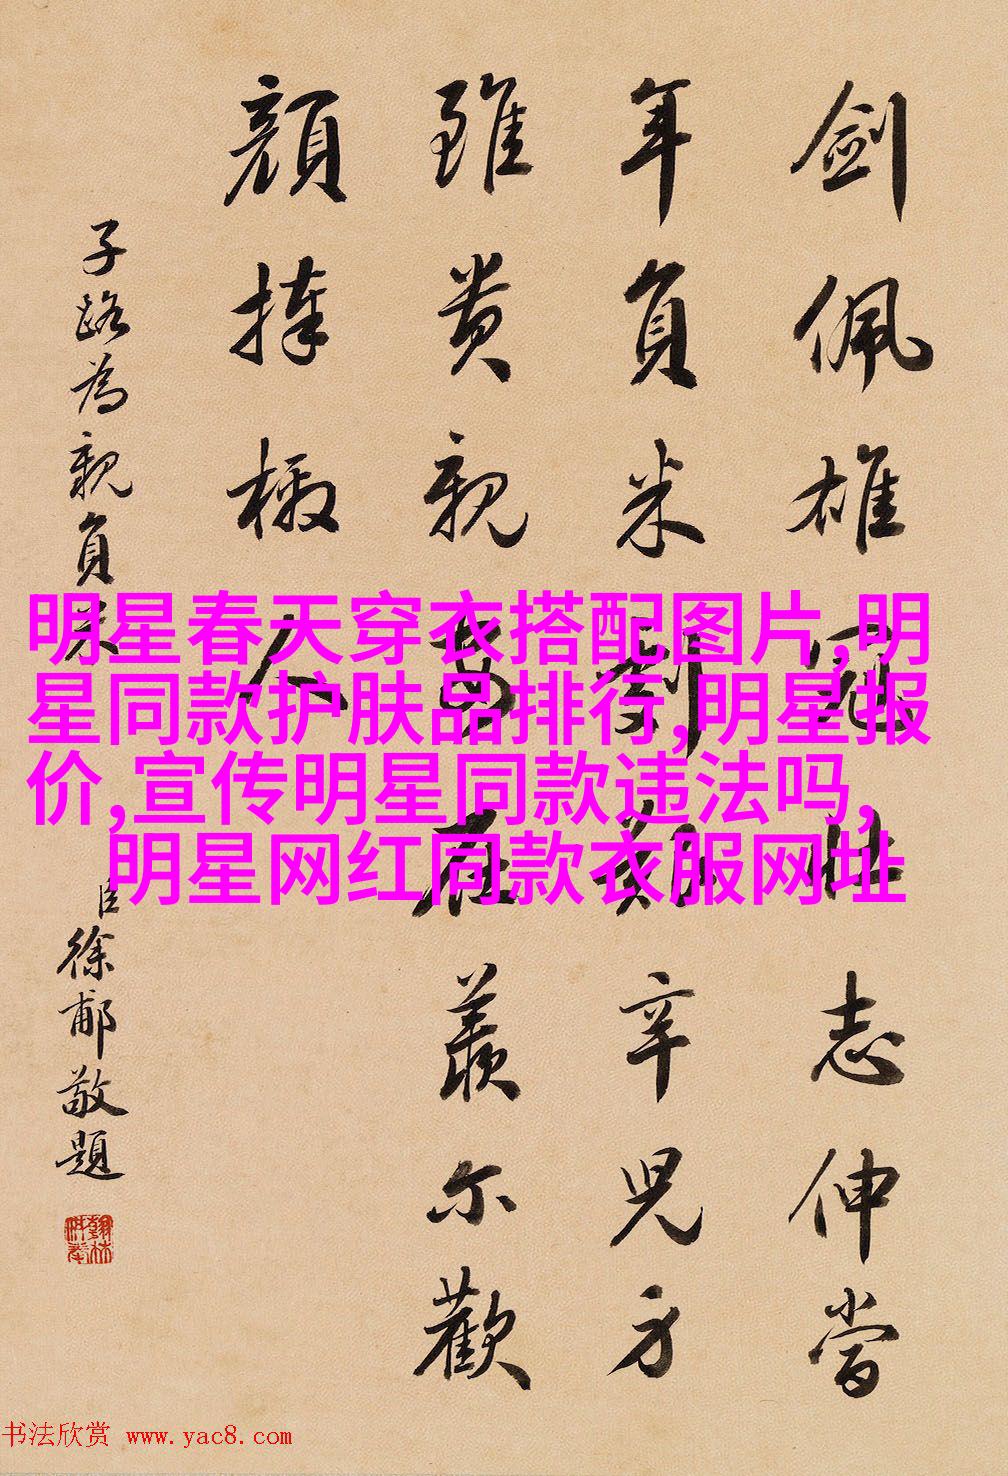 劍佩雄冠壯志伸當
年負米辛兒方
雖貴親在羨爾歡
顏捧檄人
子路為親負米
臣徐郙敬題
明星春天穿衣搭配图片,明
星同款护肤品排行,明星报
价,宣传明星同款违法吗,
明星网红同款衣服网址
书法欣赏 www.yac8.com